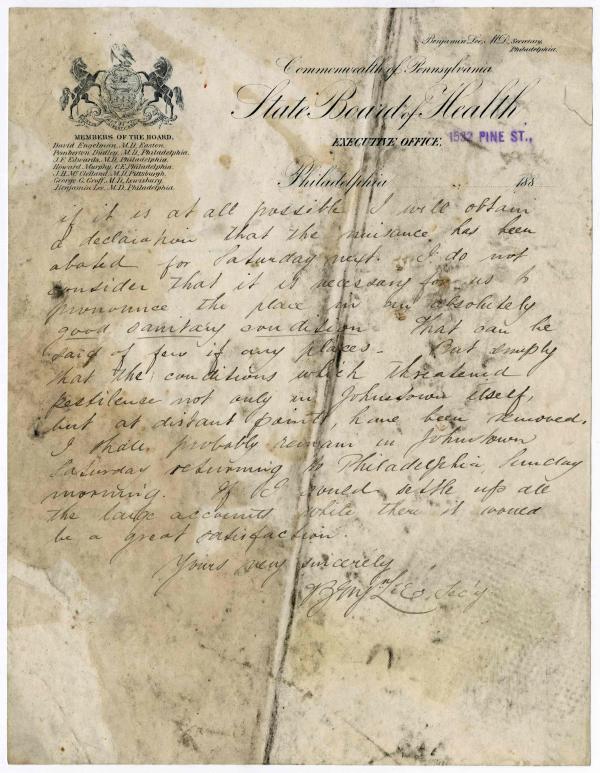 Benjamin Lee, M.D., Secretary,
Philadelphia.
Commonwealth of Pennsylvania
State Board of Health
EXECUTIVE OFFICE, 1532 PINE ST.,
MEMBERS OF THE BOARD.
David Engelman, M.D. Easton.
Pemberton Dudley, M.D. Philadelphia.
J.F. Edwards, M.D. Philadelphia.
Howard Murphy, C.E. Philadelphia.
J.H. McClelland, M.D. Pittsburgh.
George G. Groff, M.D. Lewisburg.
Benjamin Lee, M.D. Philadelphia.
Philadelphia 188
if it is at all possible I will obtain
a declaration that the nuisance has been
abated for Saturday next. I do not
consider that it is necessary for us to
pronounce the place in an absolutely
good sanitary condition. That can be
said of few if any places. But simply
that the conditions which threatened
pestilence not only in Johnstown itself,
but at distant points, have been removed.
I shall probably remain in Johnstown
Saturday returning to Philadelphia Sunday
morning. If I could settle up all
the large accounts while there it would
be a great satisfaction.
Yours very sincerely
Benjn Lee, Sec'y